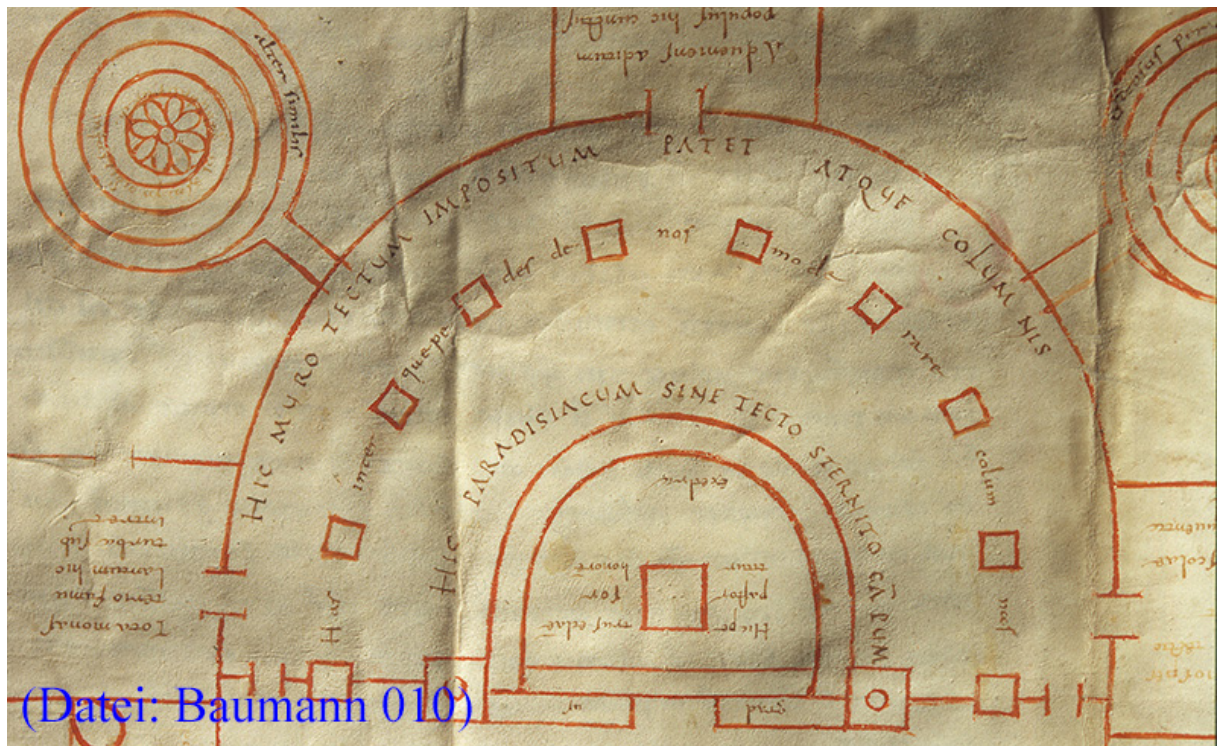 Adueniens aditum
populus hic cunctus
alter similis
HIC MURO TECTUM IMPOSITUM PATET ATQUE COLUMNIS
Has inter quepe des de nos mode rare colum nas
HIS PARADISIACUM SINE TECTO STERNITO CĀPUM
exedra
Hic pe trus eclae
pastor sor
titur honorē
grad us
Tota monas
terio famu
lantum hic
turba sub
intret
scolae
(Datei: Baumann 010)